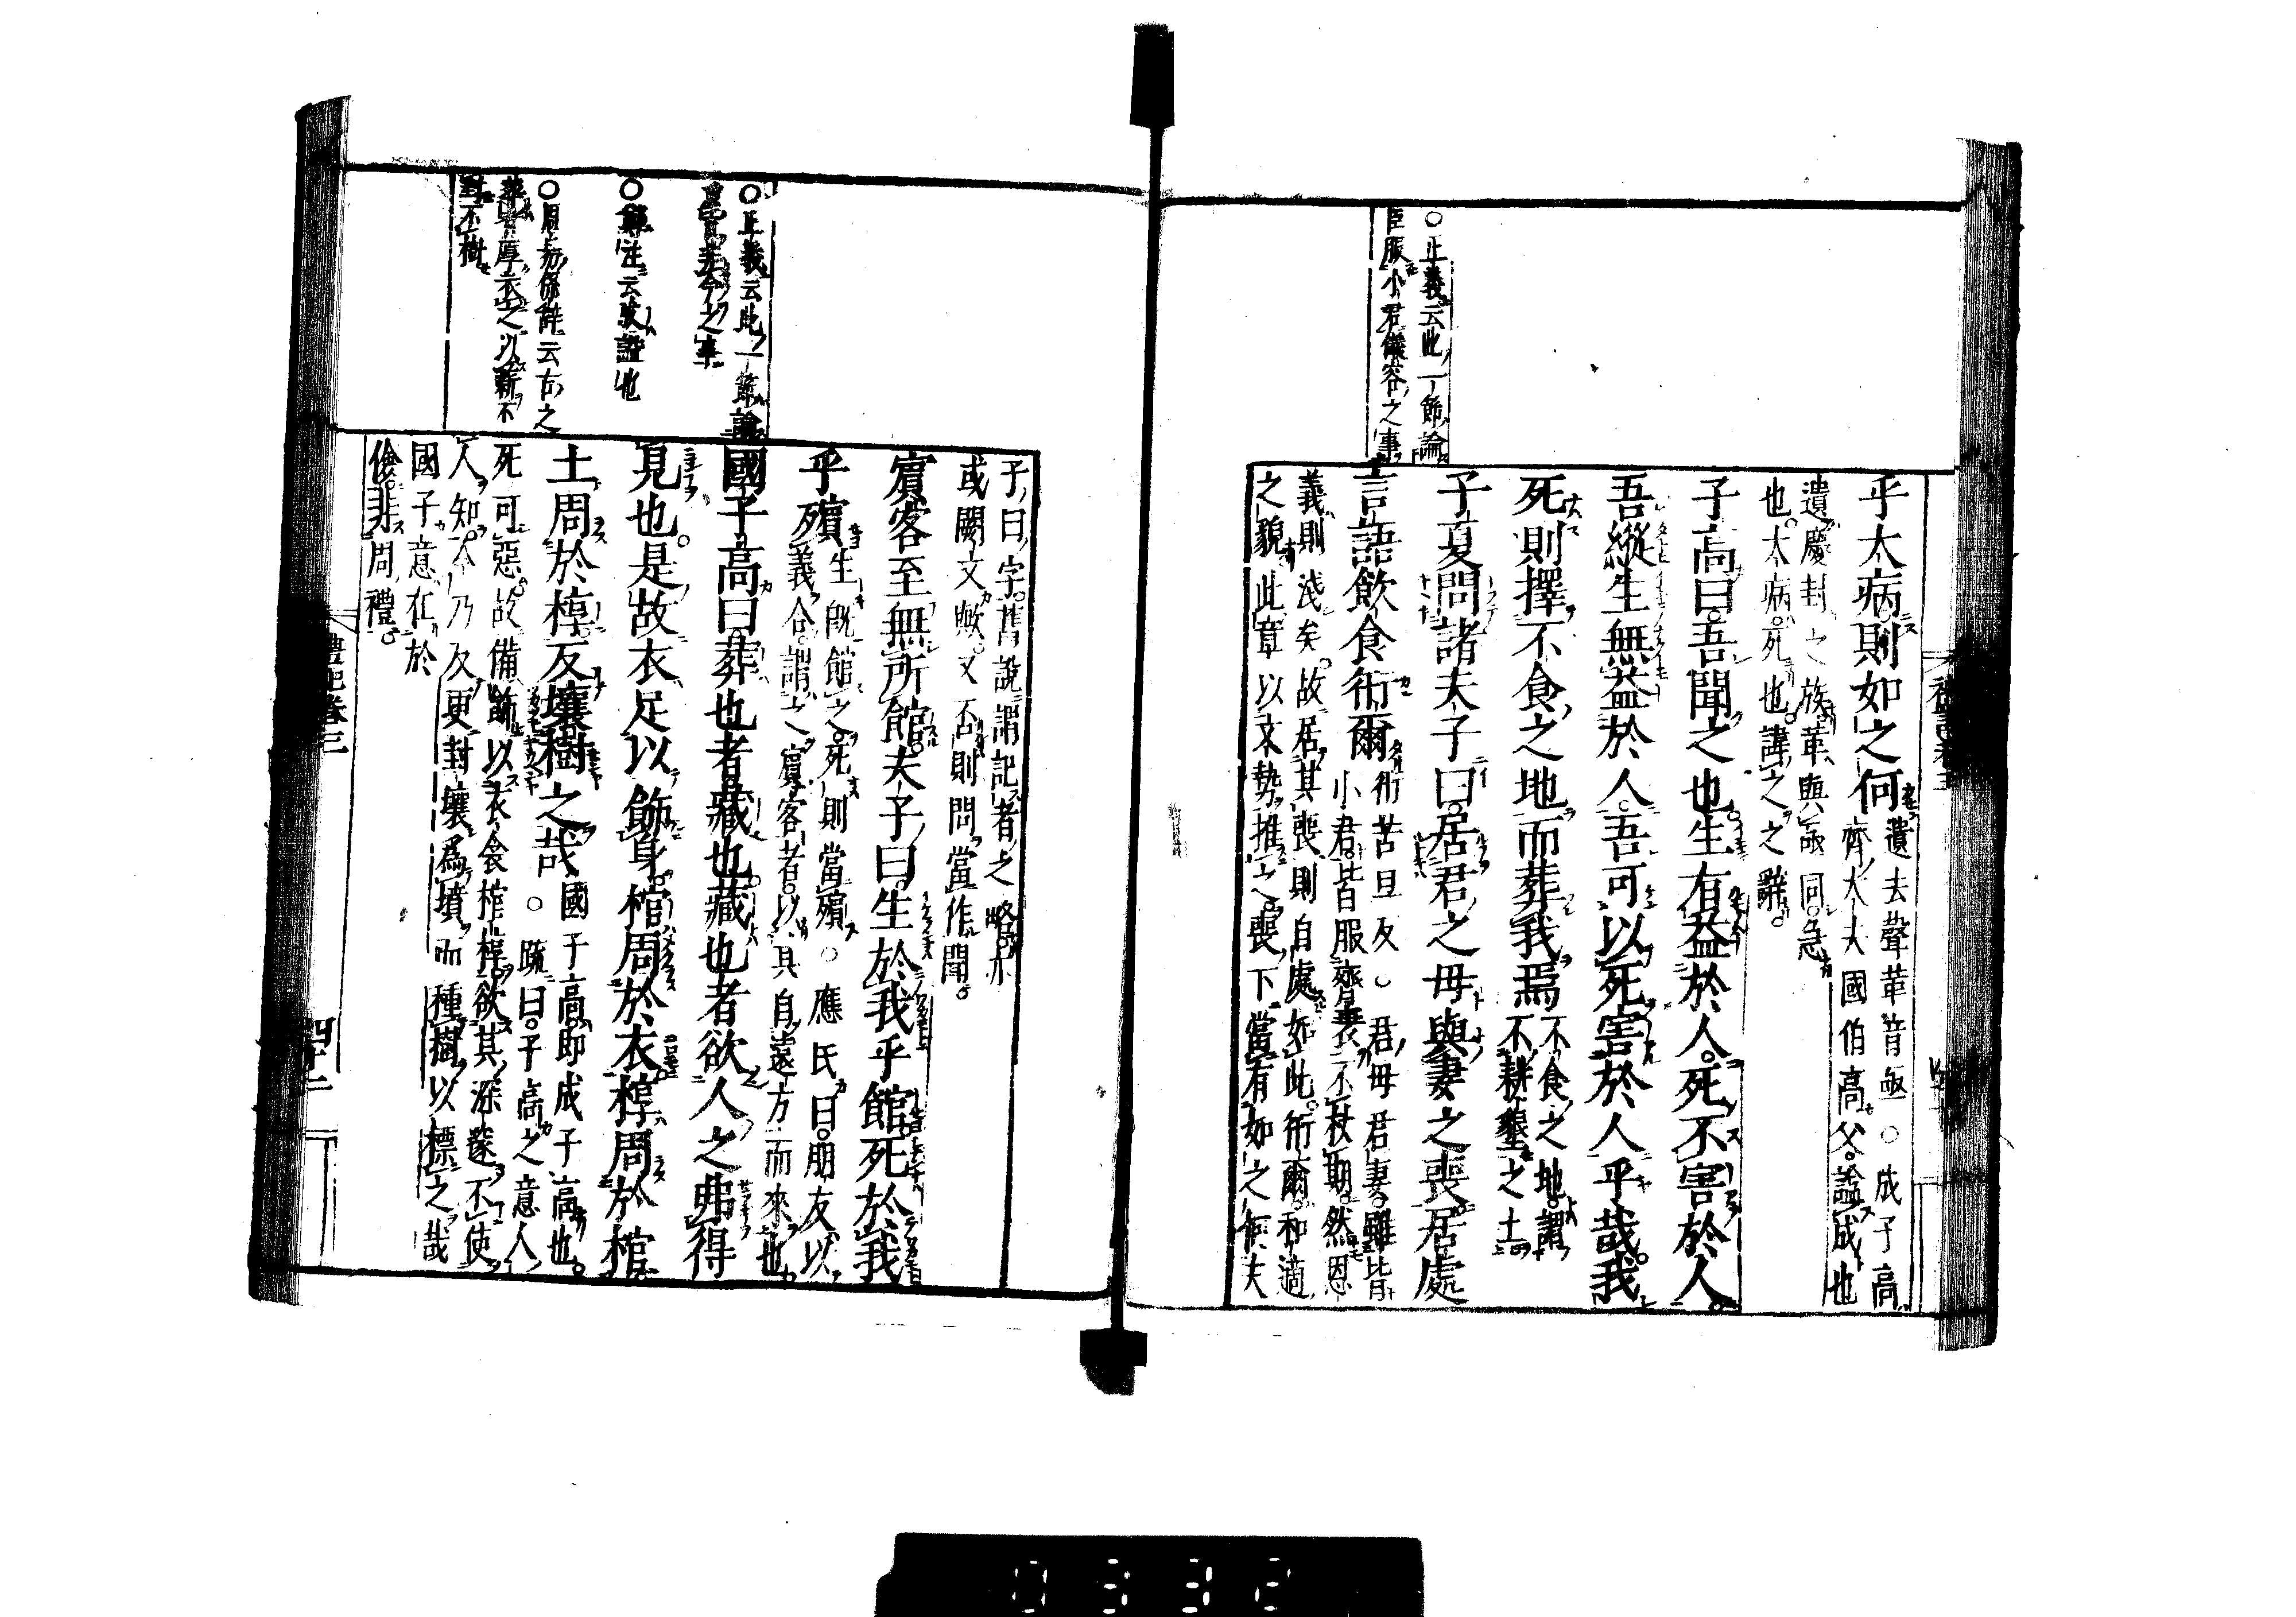 乎大病則如之何遺去聲革音亟○成子高
齊大夫國伯高父謚成也
遺慶封之族革與亟同急
也大病死也諱之之辭
子高曰吾聞之也生有益於人死不害於人
吾縱生無益於人吾可以死害於人乎哉我
死則擇不食之地而葬我焉不食之地謂
不耕墾之土
子夏問諸夫子曰居君之母與妻之喪居處
○正義云此一節論
臣服小君儀容之事
言語飲食衎爾衎苦旦反○君母君妻雖皆
小君皆服齊衰不杖期然恩
義則淺矣故居其喪則自處如此衎爾和適
之貌此章以文勢推之喪下當有如之何夫
子曰字舊說謂記者之略亦
或闕文歟又否則問當作聞
賓客至無所館夫子曰生於我乎館死於我
乎殯生既館之死則當殯○應氏曰朋友以
義合謂之賓客者以其自遠方而來也
○正義云此一節論
重非今之事
國子高曰葬也者藏也藏也者欲人之弗得
見也是故衣足以飾身棺周於衣椁周於棺
○鄭注云壤
土周於椁反壤樹之哉國子高即成子高也
○疏曰子高之意人
死可惡故備飾以衣衾棺椁欲其深邃不使
人知今乃反更封壤爲墳而種樹以標之哉
國子意在於
儉非周禮
○周易係辭云古之
葬厚衣之以薪不
封不樹
禮記卷三
四十二
0332